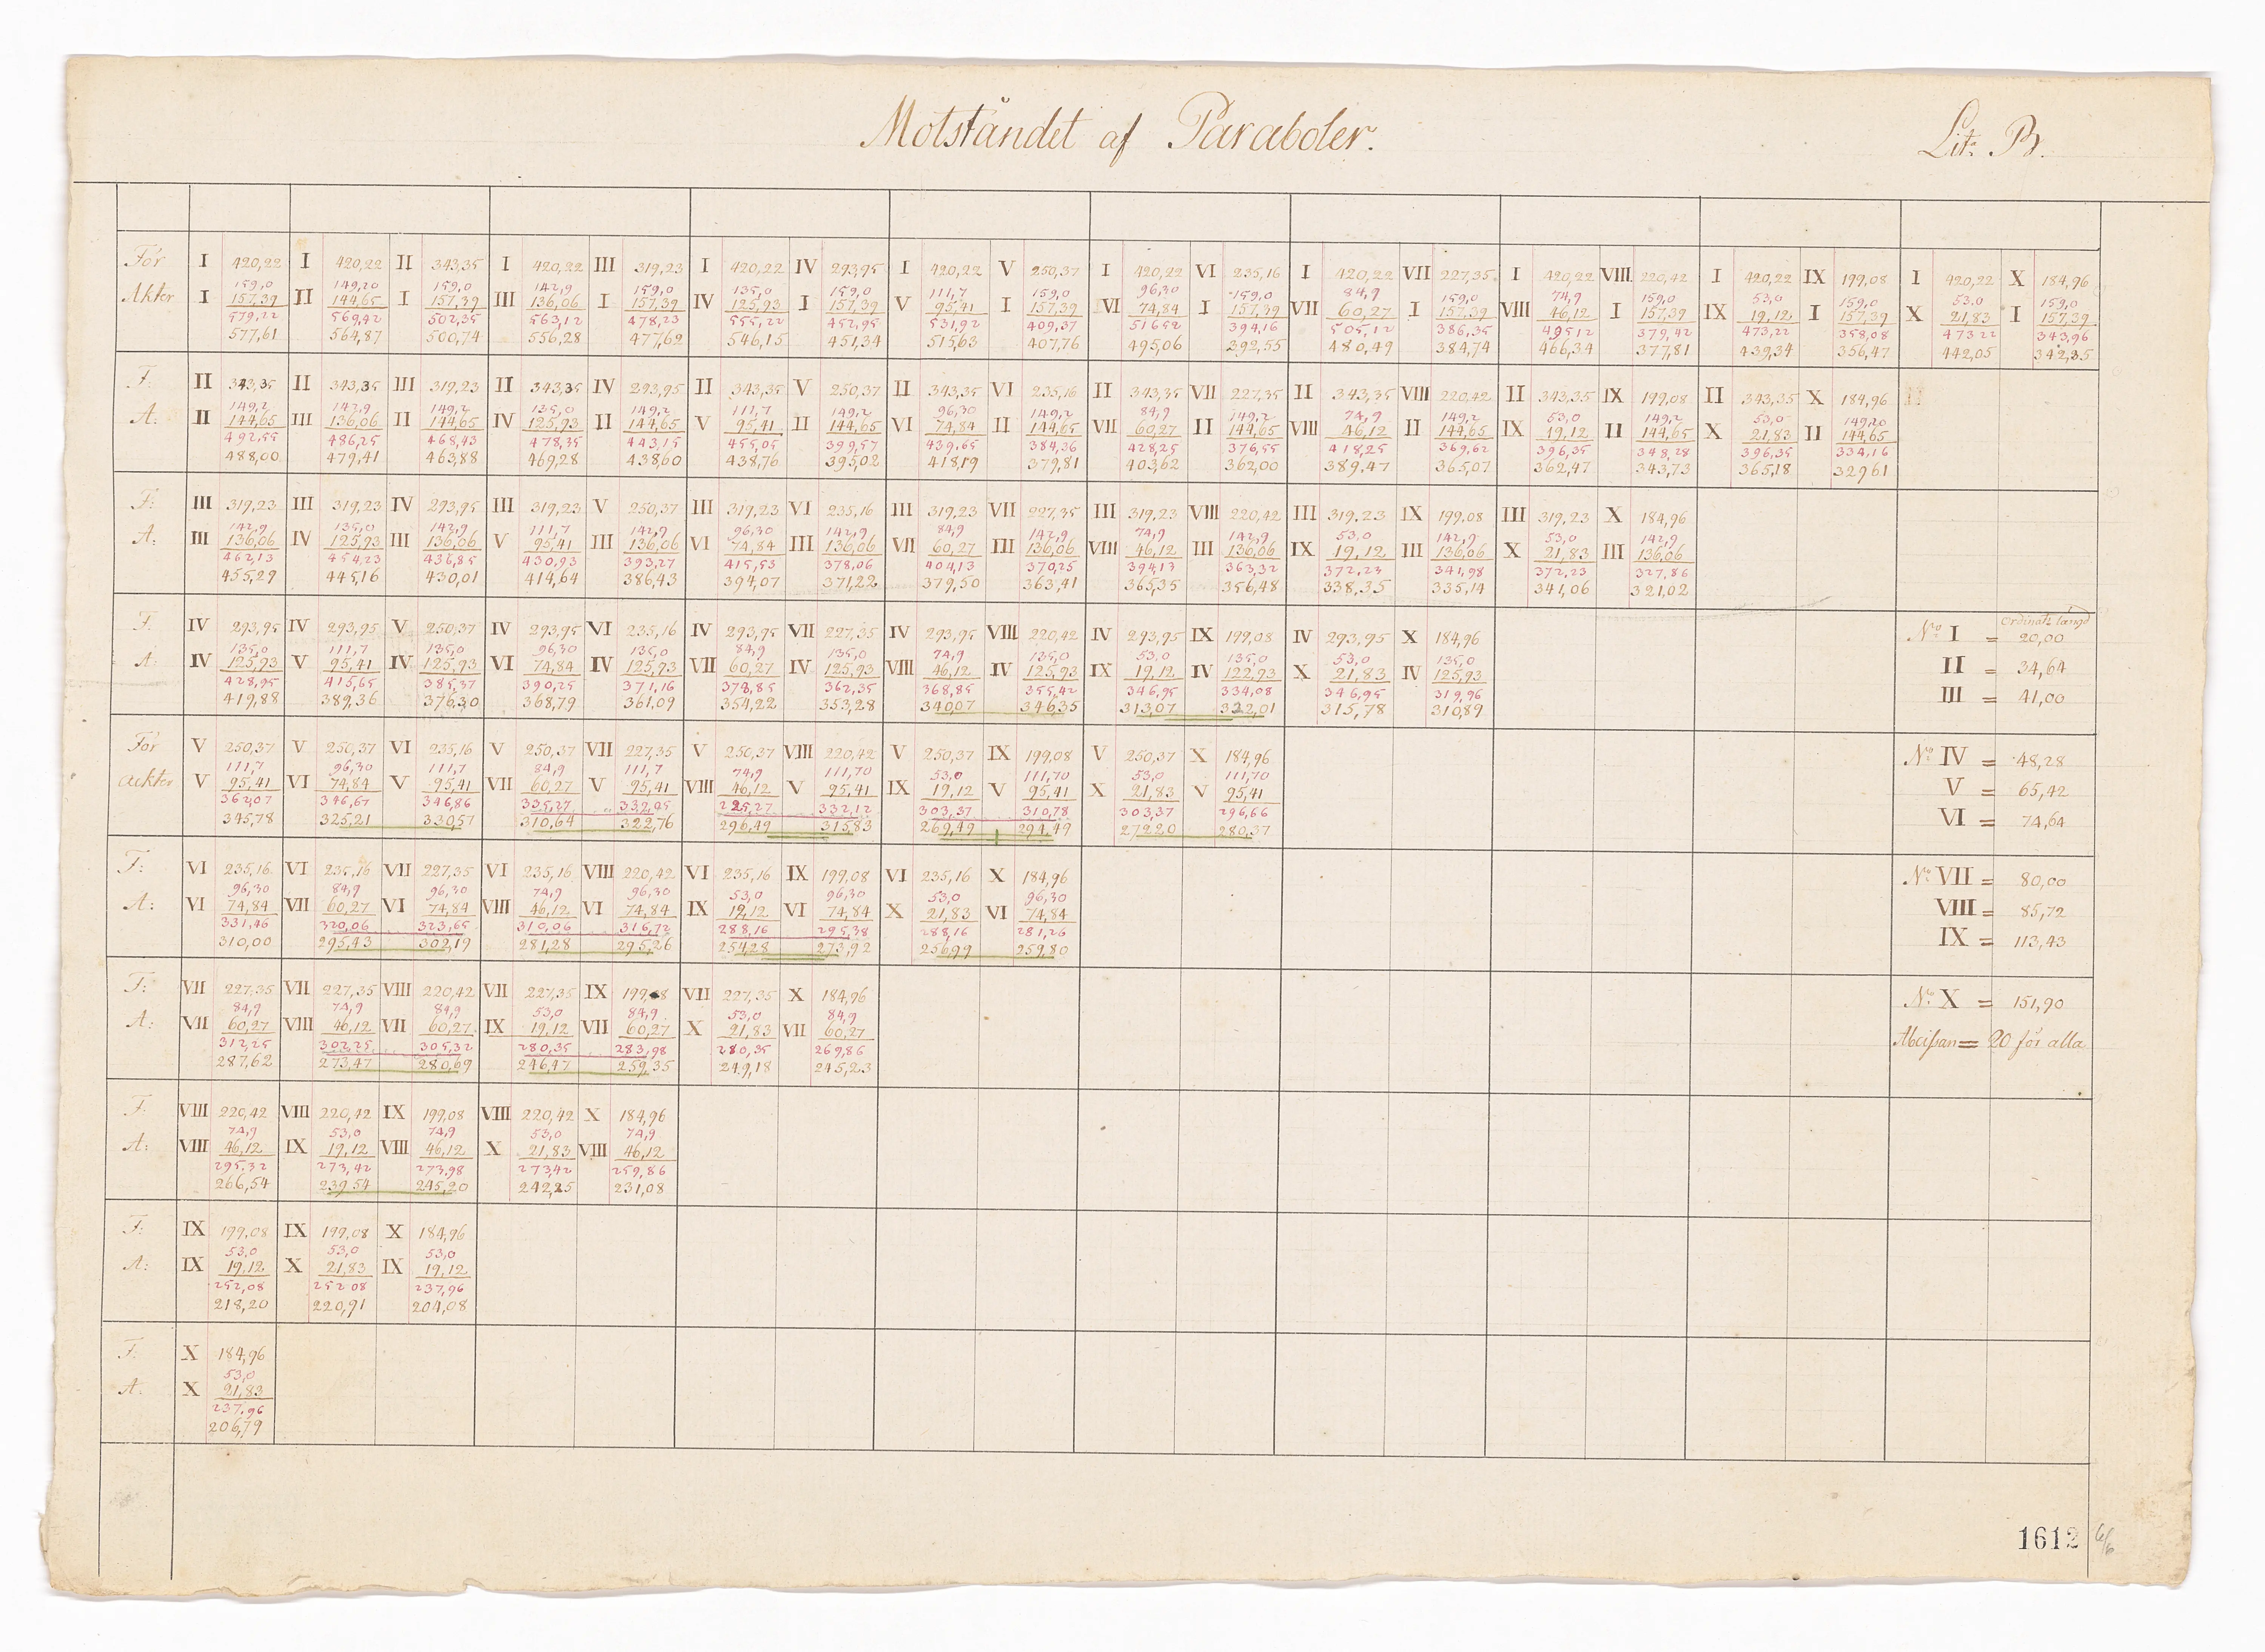 Motståndet af Paraboler.
Lit: B.
För I 420,22 I 420,22 II 343,35 I 420,22 III 319,23 I 420,22 IV 293,95 I 420,22 V 250,37 I 420,22 VI 235,16 I 420,22 VII 227,35 I 420,22 VIII 220,42 I 420,22 IX 199,08 I 420,22 X 184,96
159,0 149,20 159,0 142,9 159,0 135,0 159,0 111,7 159,0 96,30 159,0 84,9 159,0 74,9 159,0 53,0 159,0 53,0 159,0
Akter I 157,39 II 144,65 I 157,39 III 136,06 I 157,39 IV 125,93 I 157,39 V 95,41 I 157,39 VI 74,84 I 157,39 VII 60,27 I 157,39 VIII 46,12 I 157,39 IX 19,12 I 157,39 X 21,83 I 157,39
579,22 569,42 502,35 563,12 478,23 555,22 452,95 531,92 409,37 51652 394,16 505,12 386,35 495,12 379,42 473,22 358,08 47322 343,96
577,61 564,87 500,74 556,28 477,62 546,15 451,34 515,63 407,76 495,06 392,55 480,49 384,74 466,34 377,81 439,34 356,47 442,05 342,35
F: II 343,35 II 343,35 III 319,23 II 343,35 IV 293,95 II 343,35 V 250,37 II 343,35 VI 235,16 II 343,35 VII 227,35 II 343,35 VIII 220,42 II 343,35 IX 199,08 II 343,35 X 184,96
149,2 142,9 149,2 135,0 149,2 111,7 149,2 96,30 149,2 84,9 149,2 74,9 149,2 53,0 149,2 53,0 149,20
A: II 144,65 III 136,06 II 144,65 IV 125,93 II 144,65 V 95,41 II 144,65 VI 74,84 II 144,65 VII 60,27 II 144,65 VIII 46,12 II 144,65 IX 19,12 II 144,65 X 21,83 II 144,65
492,55 486,25 468,43 478,35 443,15 455,05 399,57 439,65 384,36 428,25 376,55 418,25 369,62 396,35 348,28 396,35 334,16
488,00 479,41 463,88 469,28 438,60 438,76 395,02 418,19 379,81 403,62 362,00 389,47 365,07 362,47 343,73 365,18 32961
F: III 319,23 III 319,23 IV 293,95 III 319,23 V 250,37 III 319,23 VI 235,16 III 319,23 VII 227,35 III 319,23 VIII 220,42 III 319,23 IX 199,08 III 319,23 X 184,96
142,9 135,0 142,9 111,7 142,9 96,30 142,9 84,9 142,9 74,9 142,9 53,0 142,9 53,0 142,9
A: III 136,06 IV 125,93 III 136,06 V 95,41 III 136,06 VI 74,84 III 136,06 VII 60,27 III 136,06 VIII 46,12 III 136,06 IX 19,12 III 136,06 X 21,83 III 136,06
462,13 454,23 436,85 430,93 393,27 415,53 378,06 404,13 370,25 39413 363,32 372,23 341,98 372,23 327,86
455,29 445,16 430,01 414,64 386,43 394,07 371,22 379,50 363,41 365,35 356,48 338,35 335,14 341,06 321,02
F: IV 293,95 IV 293,95 V 250,37 IV 293,95 VI 235,16 IV 293,95 VII 227,35 IV 293,95 VIII 220,42 IV 293,95 IX 199,08 IV 293,95 X 184,96
135,0 111,7 135,0 96,30 135,0 84,9 135,0 74,9 135,0 53,0 135,0 53,0 135,0
A: IV 125,93 V 95,41 IV 125,93 VI 74,84 IV 125,93 VII 60,27 IV 125,93 VIII 46,12 IV 125,93 IX 19,12 IV 122,93 X 21,83 IV 125,93
428,95 415,65 385,37 390,25 371,16 378,85 362,35 368,85 355,42 346,95 334,08 346,95 319,96
419,88 389,36 376,30 368,79 361,09 354,22 353,28 34007 346,35 313,07 322,01 315,78 310,89
Ordinats längd
No: I = 20,00
II = 34,64
III = 41,00
För V 250,37 V 250,37 VI 235,16 V 250,37 VII 227,35 V 250,37 VIII 220,42 V 250,37 IX 199,08 V 250,37 X 184,96
111,7 96,30 111,7 84,9 111,7 74,9 111,70 53,0 111,70 53,0 111,70
Ackter V 95,41 VI 74,84 V 95,41 VII 60,27 V 95,41 VIII 46,12 V 95,41 IX 19,12 V 95,41 X 21,83 V 95,41
362,07 346,67 346,86 335,27 332,12 303,37 310,78 303,37 296,66
345,78 325,21 330,57 310,64 322,76 296,49 315,83 269,49 294,49 27220 280,37
No: IV = 48,28
V = 65,42
VI = 74,64
F: VI 235,16 VI 235,16 VII 227,35 VI 235,16 VIII 220,42 VI 235,16 IX 199,08 VI 235,16 X 184,96
96,30 84,9 96,30 74,9 96,30 53,0 96,30 53,0 96,30
A: VI 74,84 VII 60,27 VI 74,84 VIII 46,12 VI 74,84 IX 19,12 VI 74,84 X 21,83 VI 74,84
331,46 320,06 323,65 310,06 316,72 288,16 295,38 288,16 281,26
310,00 295,43 302,19 281,28 295,26 254,28 273,92 256,99 259,80
No: VII = 80,00
VIII = 85,72
IX = 113,43
F: VII 227,35 VII 227,35 VIII 220,42 VII 227,35 IX VII 227,35 X 184,96
84,9 74,9 84,9 53,0 84,9 53,0 84,9
A: VII 60,27 VIII 46,12 VII 60,27 IX 19,12 VII 60,27 X 21,83 VII 60,27
312,25 302,25 305,32 280,35 283,98 280,35 269,86
287,62 273,47 280,69 246,47 259,35 249,18 245,23
No: X = 151,90
Abcißan = 20 för alla
F. VIII 220,42 VIII 220,42 IX 199,08 VIII 220,42 X 184,96
74,9 53,0 74,9 53,0 74,9
A: VIII 46,12 IX 19,12 VIII 46,12 X 21,83 VIII 46,12
295,32 273,42 273,98 273,42 259,86
266,54 239,54 245,20 242,25 231,08
F: IX 199,08 IX 199,08 X 184,96
53,0 53,0 53,0
A: IX 19,12 X 21,83 IX 19,12
252,08 25208 237,96
218,20 220,91 204,08
F. X 184,96
53,0
A. X 21,83
237,96
206,79
1612 6/6